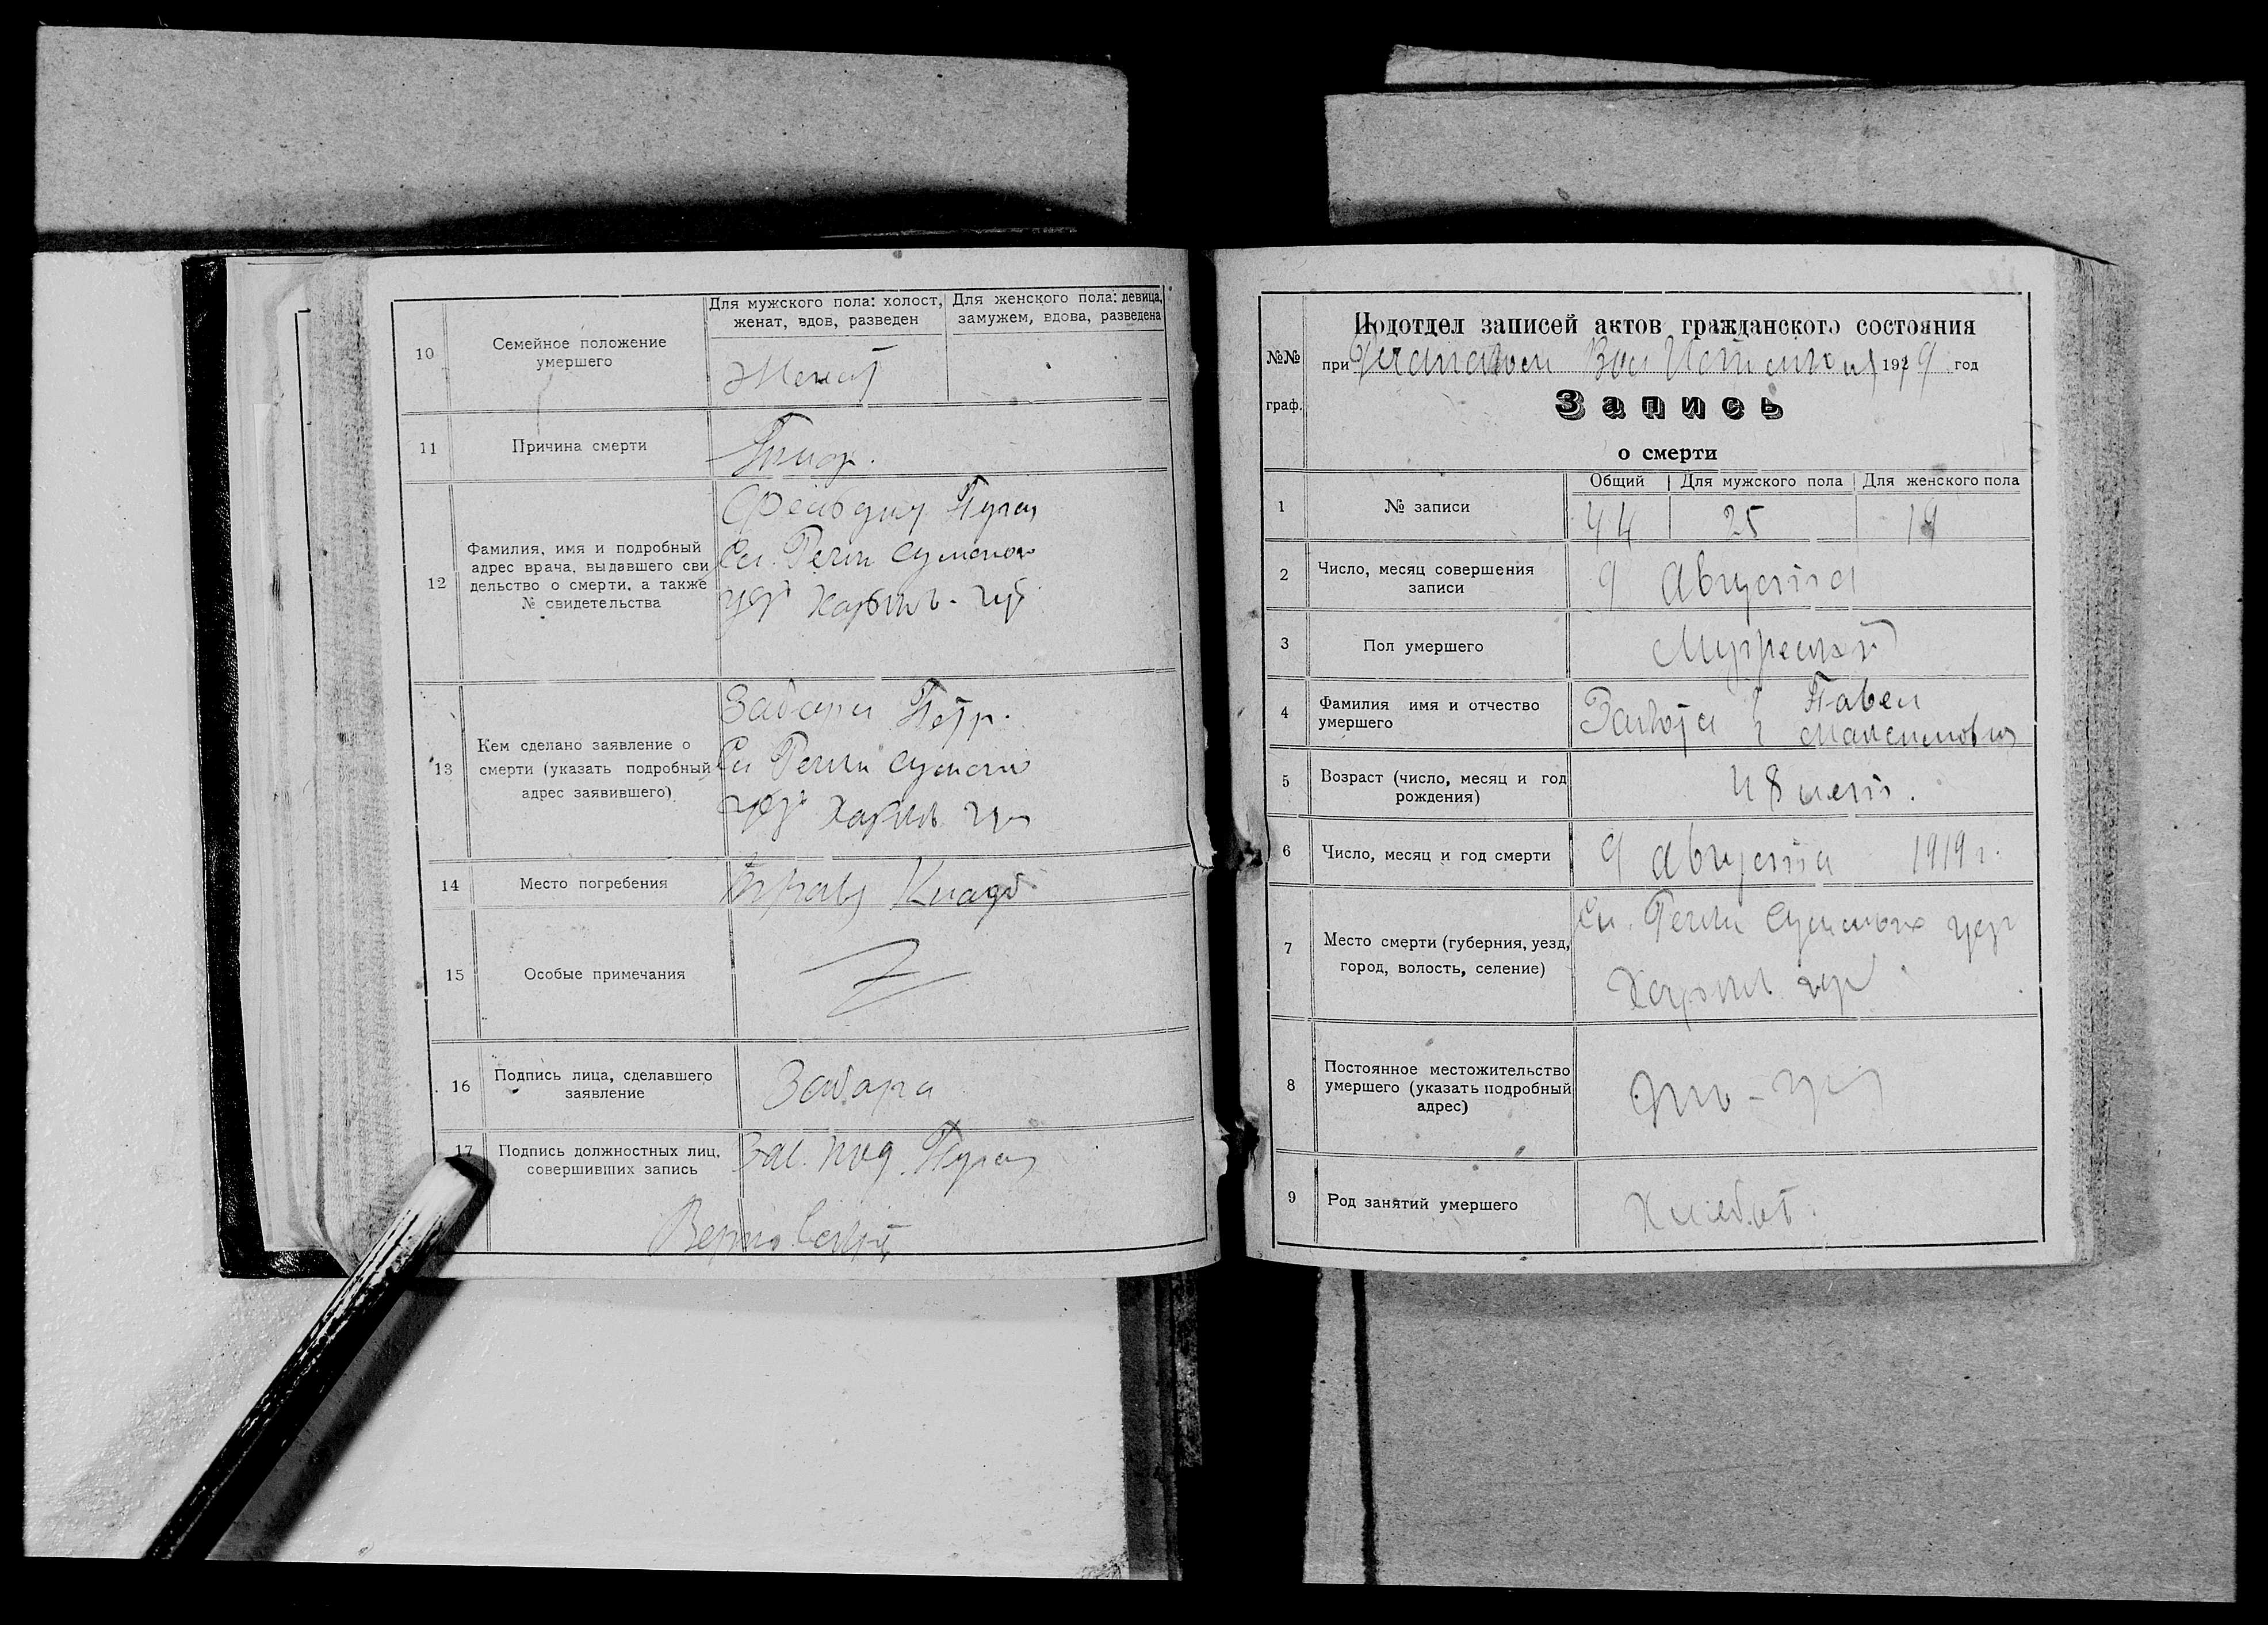 10
Семейное положение
умершего
Для мужского пола: холост,
женат, вдов, разведен
Для женского пола: девица,
замужем, вдова, разведена
Женат
11
Причина смерти
12
Фамилия, имя и подробный
адрес врача, выдавшего сви
дельство о смерти, а также
№ свидетельства
Сл. Речки Сумского
уез Харьк. губ
13
Кем сделано заявление о
смерти (указать подробный
адрес заявившего)
Забара Петр.
Сл Речки Сумского
уез Харьк губ
14
Место погребения
Кладб
15
Особые примечания
16
Подпись лица, сделавшего
заявление
Забара
17
Подпись должностных лиц,
совершивших запись
Зав. под.
№№
граф.
Подотдел записей актов гражданского состояния
при Вол Исполком 1919 год
Запись
о смерти
1
№ записи
Общий
Для мужского пола
Для женского пола
44
25
19
2
Число, месяц совершения
записи
9 Августа
3
Пол умершего
Мужеской
4
Фамилия имя и отчество
умершего
Павел
Максимович
5
Возраст (число, месяц и год
рождения)
48 лет.
6
Число, месяц и год смерти
9 Августа 1919 г.
7
Место смерти (губерния, уезд,
город, волость, селение)
Сл. Речки Сумского уез
Харьк. губ
8
Постоянное местожительство
умершего (указать подробный
адрес)
9
Род занятий умершего
Хлебоп.